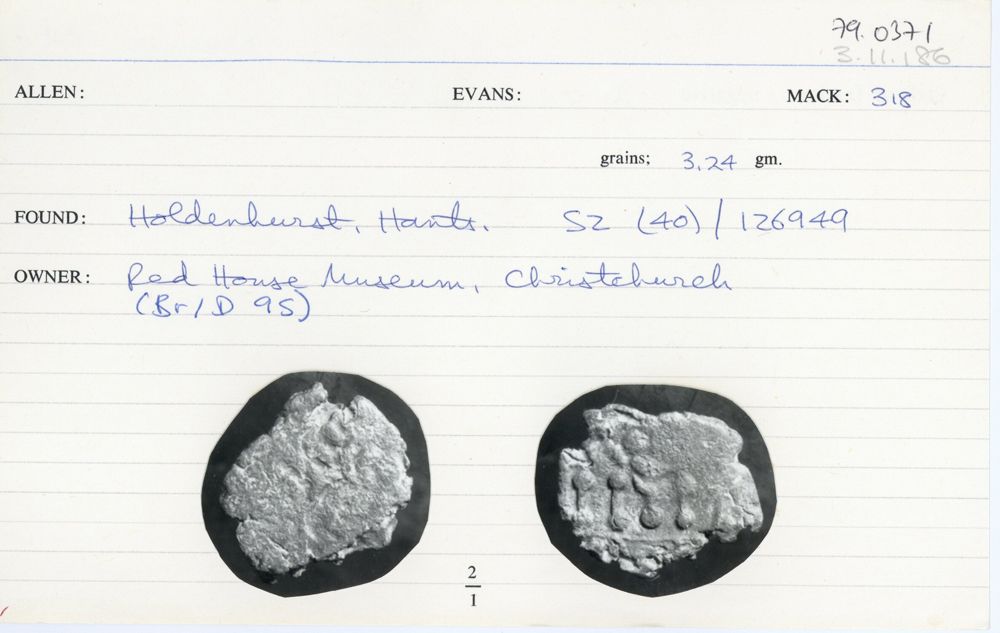 79.0371
3.11.186
ALLEN: EVANS: MACK: 318
grains; 3.24 gm.
FOUND: Holdenhurst, Hants. SZ (40) / 126949
OWNER: Red House Museum, Christchurch
(Br/D 95)
2
1